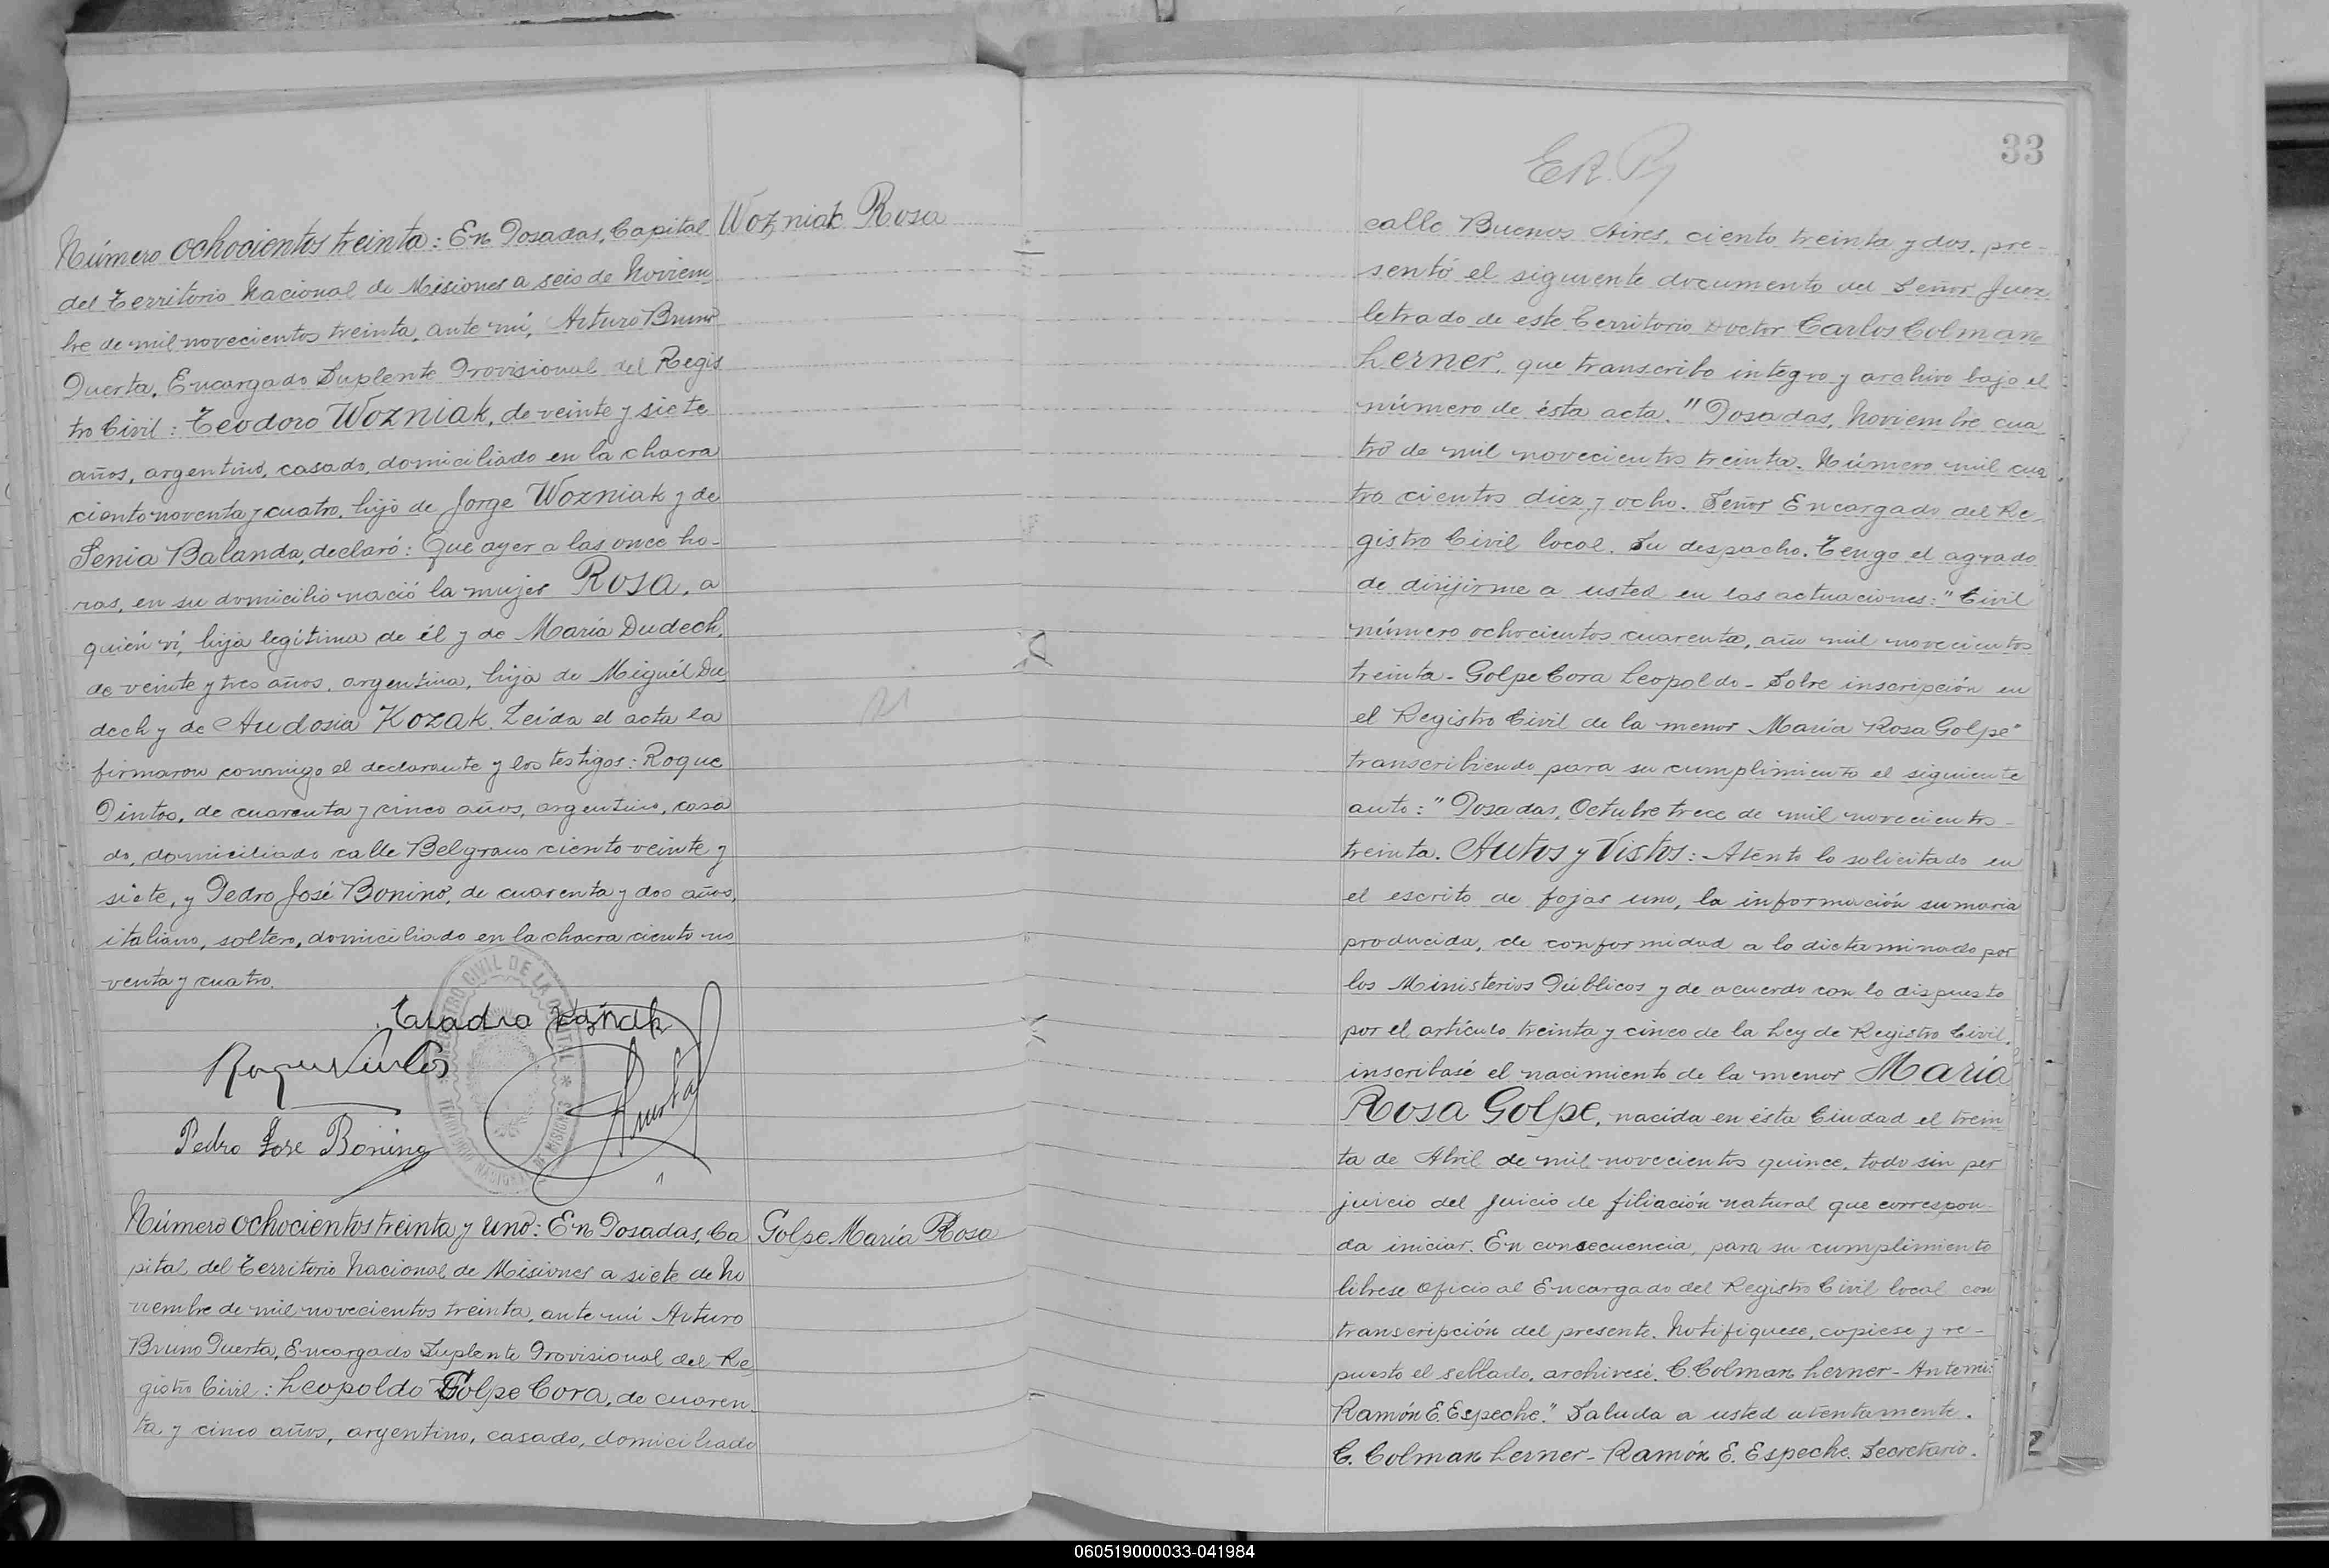 Wozniak Rosa
Número ochocientos treinta: En Posadas, Capital
del Territorio Nacional de Misiones a seis de Noviem
bre de mil novecientos treinta, ante mí, Arturo Bruno
Puerta, Encargado Suplente Provisional del Regis
tro Civil: Teodoro Wozniak, de veinte y siete
años, argentino, casado, domiciliado en la chacra
ciento noventa y cuatro, hijo de Jorge Wozniak y de
Senia Balanda, declaró: Que ayer a las once ho-
ras, en su domicilio nació la mujer Rosa, a
quién ví, hija legítima de él y de María Dudech,
de veinte y tres años, argentina, hija de Miguél Du
dech y de Audosia Kozak. Leída el acta la
firmaron conmigo el declarante y los testigos: Roque
Pintos, de cuarenta y cinco años, argentino, casa
do, domiciliado calle Belgrano ciento veinte y
siete, y Pedro José Bonino, de cuarenta y dos años,
italiano, soltero, domiciliado en la chacra ciento no
venta y cuatro.
REGISTRO CIVIL DE LA CAPITAL * TERRITORIO NACIONAL DE MISIONES *
Pedro Jose Bonino
Golpe María Rosa
Número ochocientos treinta y uno: En Posadas, Ca
pital del Territorio Nacional de Misiones a siete de No
viembre de mil novecientos treinta, ante mí Arturo
Bruno Puerta, Encargado Suplente Provisional del Re
gistro Civil: Leopoldo Golpe Cora, de cuaren
ta y cinco años, argentino, casado, domiciliado
33
calle Buenos Aires, ciento treinta y dos, pre-
sentó el siguiente documento del Señor Juez
letrado de este Territorio Doctor Carlos Colman
Lerner, que transcribo integro y archivo bajo el
número de ésta acta. "Posadas, Noviembre cua
tro de mil novecientos treinta. Número mil cua
tro cientos diez y ocho. Señor Encargado del Re-
gistro Civil local. Su despacho. Tengo el agrado
de dirijirme a usted en las actuaciones: "Civil
número ochocientos cuarenta, año mil novecientos
treinta - Golpe Cora Leopoldo - Sobre inscripción en
el Registro Civil de la menor María Rosa Golpe"
transcribiendo para su cumplimiento el siguiente
auto: "Posadas, Octubre trece de mil novecientos
treinta. Autos y Vistos: Atento lo solicitado en
el escrito de fojas uno, la información sumaria
producida, de conformidad a lo dictaminado por
los Ministerios Públicos y de acuerdo con lo dispuesto
por el artículo treinta y cinco de la Ley de Registro Civil,
inscribasé el nacimiento de la menor María
Rosa Golpe, nacida en ésta Ciudad el trein
ta de Abril de mil novecientos quince, todo sin per
juicio del juicio de filiación natural que correspon-
da iniciar. En consecuencia, para su cumplimiento
librese oficio al Encargado del Registro Civil local con
transcripción del presente. Notifiquese, copiese y re-
puesto el sellado, archivesé. C. Colman Lerner - Ante mi:
Ramón E. Espeche." Saluda a usted atentamente.
C. Colman Lerner - Ramón E. Espeche. Secretario.
060519000033-041984